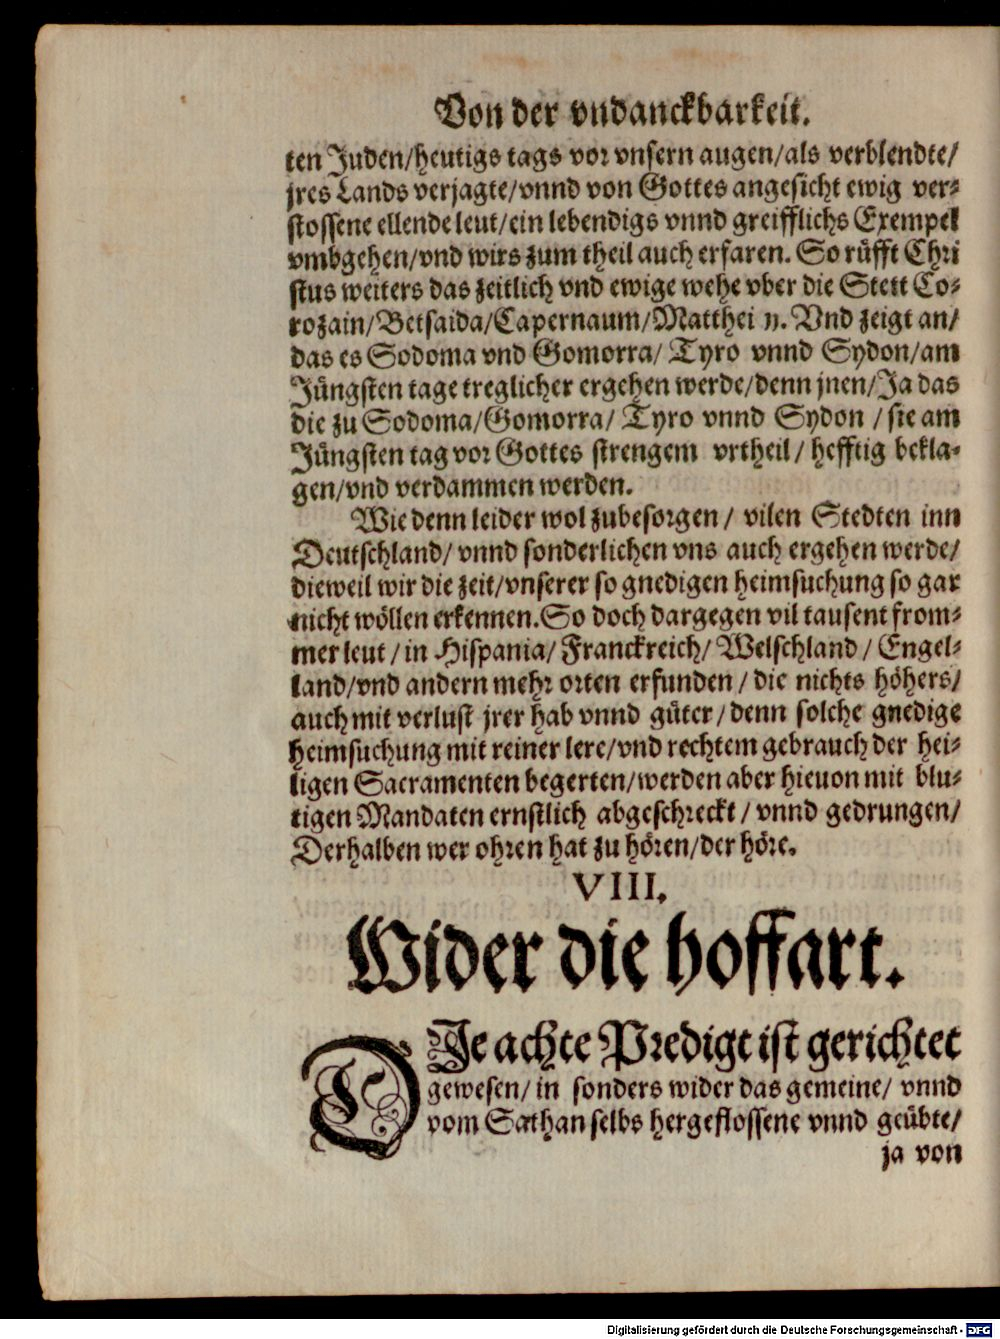 Von der vndanckbarkeit.
ten Juden/heutigs tags vor vnsern augen/als verblendte/
jres Lands verjagte/vnnd von Gottes angesicht ewig ver-
stossene ellende leut/ein lebendigs vnnd greifflichs Exempel
vmbgehen/vnd wirs zum theil auch erfaren. So rüfft Chri
stus weiters das zeitlich vnd ewige wehe vber die Stett Co-
rozain/Betsaida/Capernaum/Matthei 11. Vnd zeigt an/
das es Sodoma vnd Gomorra/ Tyro vnnd Sydon/am
Jüngsten tage treglicher ergehen werde/denn jnen/Ja das
die zu Sodoma/Gomorra/ Tyro vnnd Sydon /sie am
Jüngsten tag vor Gottes strengem vrtheil/ hefftig bekla-
gen/vnd verdammen werden.
Wie denn leider wol zubesorgen/ vilen Stedten inn
Deutschland/ vnnd sonderlichen vns auch ergehen werde/
dieweil wir die zeit/vnserer so gnedigen heimsuchung so gar
nicht wöllen erkennen.So doch dargegen vil tausent from-
mer leut /in Hispania/ Franckreich/ Welschland/ Engel-
land/vnd andern mehr orten erfunden/ die nichts höhers/
auch mit verlust jrer hab vnnd güter/denn solche gnedige
heimsuchung mit reiner lere/vnd rechtem gebrauch der hei-
ligen Sacramenten begerten/werden aber hieuon mit blu-
tigen Mandaten ernstlich abgeschreckt/ vnnd gedrungen/
Derhalben wer ohren hat zu hören/der höre.
VIII.
Wider die hoffart.
DJe achte Predigt ist gerichtet
gewesen/ in sonders wider das gemeine/ vnnd
vom Sathan selbs hergeflossene vnnd geübte/
ja von
Digitalisierung gefördert durch die Deutsche Forschungsgemeinschaft - DFG